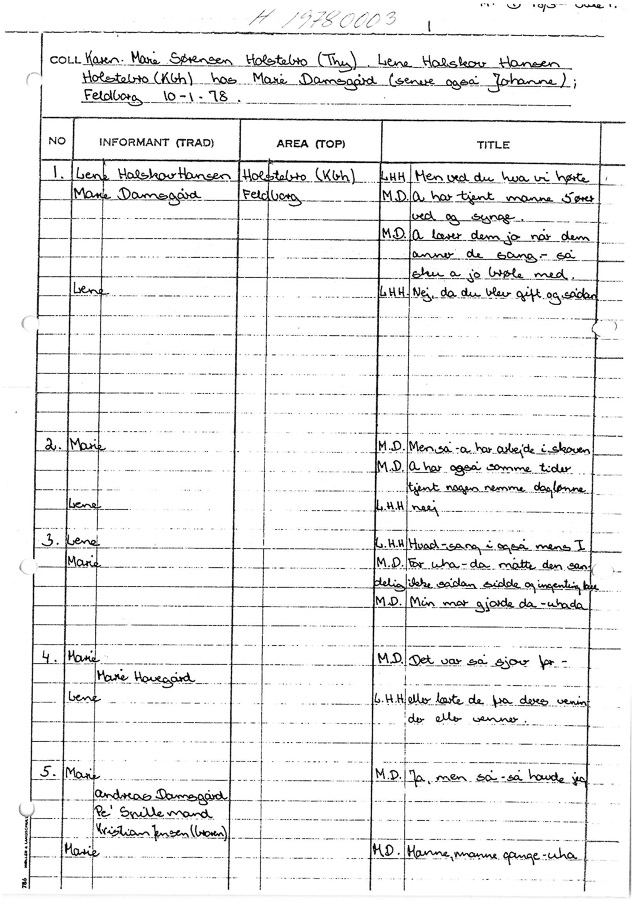 H 19780003
COLL Karen. Marie Sørensen Holstebro (Thy). Lene Halskov Hansen
Holstebro (Kbh) hos Marie Damsgård (senere også Johanne);
Feldborg 10-1-78.
NO INFORMANT (TRAD) AREA (TOP) TITLE
1. Lene Halskov Hansen Holstebro (Kbh) LHH Men ved du hva vi hørte
Marie Damsgård Feldborg M.D. A har tjent manne 5ører
ved og synge.
M.D. A lærer dem jo når dem
anner de sang - så
sku a jo brøle med.
Lene LHH Nej, da du blev gift og sådan
2. Marie M.D. Men så - a har arbejde i skoven
M.D. A har også somme tider
tjent nogen nemme daglønne
Lene L.H.H neej
3. Lene L.H.H Hvad - sang i også mens I
Marie M.D. For wha - da måtte den san-
delig ikke sådan sidde og ingenting
M.D. Min mor gjorde da - whada
4. Marie M.D. Det var så sjov for -
Marie Havegård
Lene L.H.H eller lærte de fra deres venin
der eller venner.
5. Marie M.D. Ja, men så - så havde jeg
Andreas Damsgård
Pe' Spillemand
Kristian Jensen
Marie M.D. Manne, manne gange - wha
786